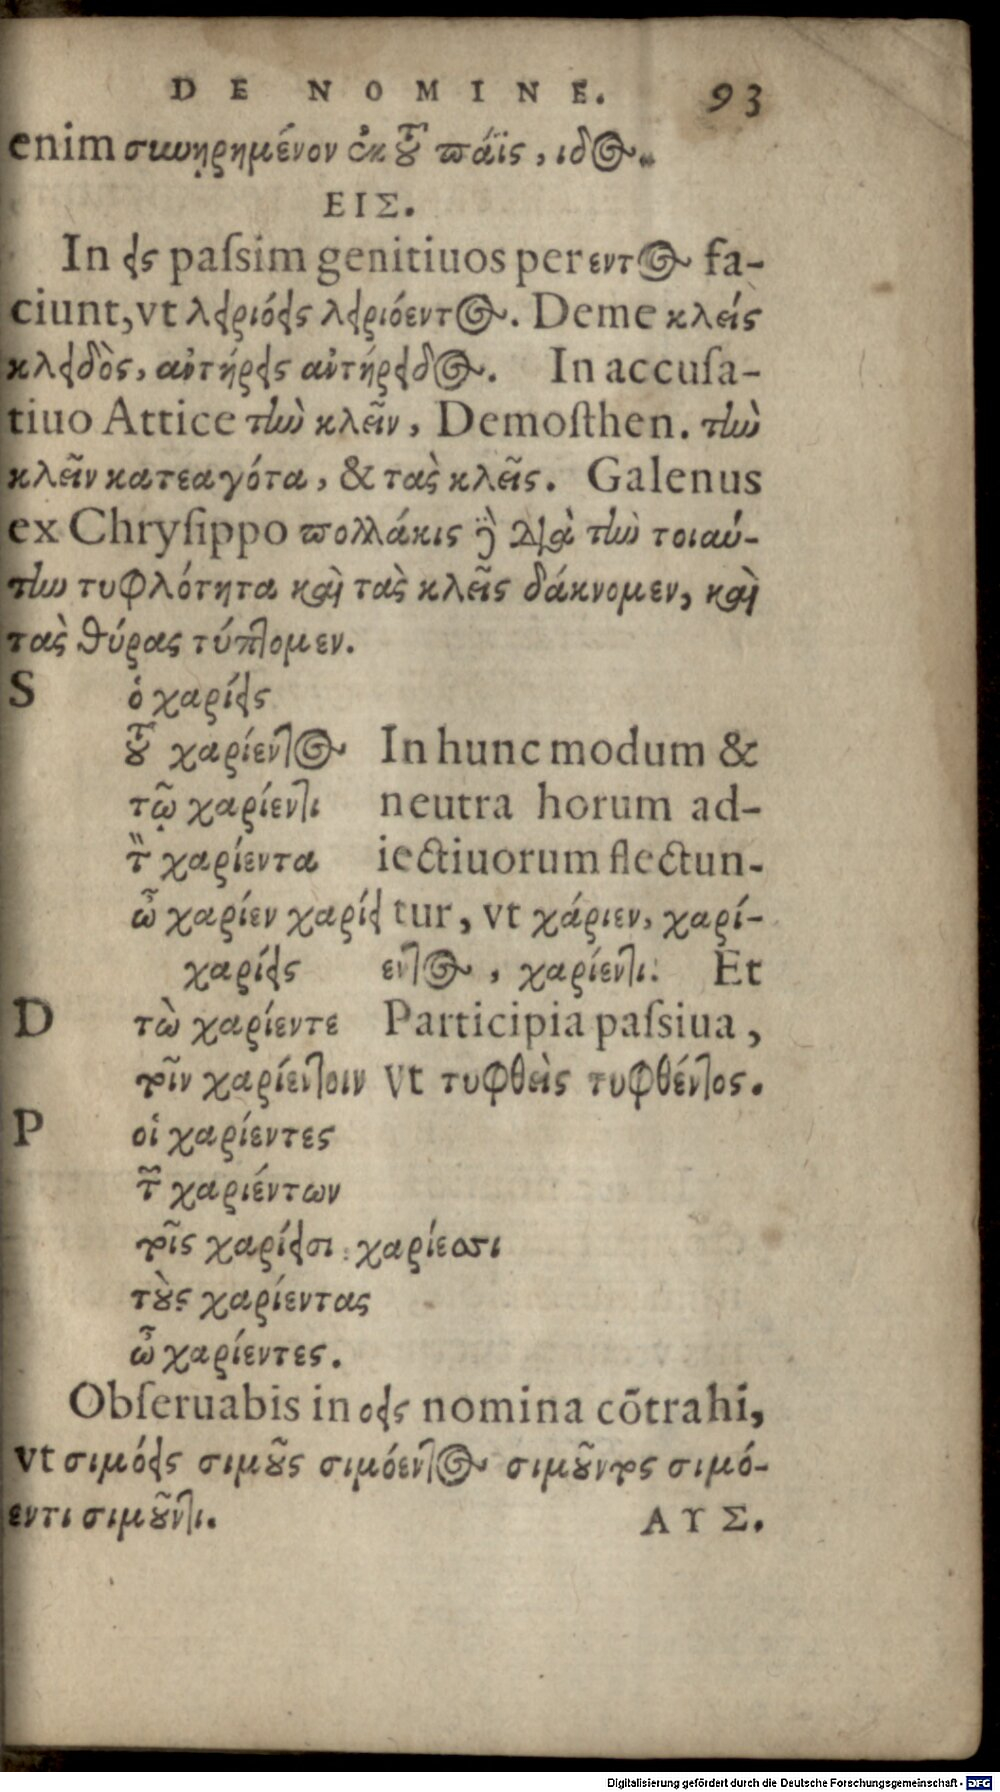 DE NOMINE. 93
enim συνῃρημένον ἐκ τοῦ πάϊς, ιδος.
ΕΙΣ.
In εις paſsim genitiuos per εντος fa-
ciunt, vt λειριόεις λειριόεντος. Deme κλείς
κλειδὸς, αὐτήρεις αὐτήρειδος. In accuſa-
tiuo Attice τὴν κλεῖν, Demoſthen. τὴν
κλεῖν κατεαγότα, & τὰς κλεῖς. Galenus
ex Chryſippo πολλάκις γὸ διὰ τὴν τοιαύ-
την τυφλότητα καὶ τὰς κλεῖς δάκνομεν, καὶ
τὰς θύρας τύπτομεν.
S ὁ χαρίεις
τοῦ χαρίεντος In hunc modum &
τῷ χαρίεντι neutra horum ad-
τὸν χαρίεντα iectiuorum flectun-
ὦ χαρίεν χαρίει tur, vt χάριεν, χαρί-
χαρίεις εντος, χαρίεντι. Et
D τὼ χαρίεντε Participia paſsiua,
τοῖν χαρίεντοιν vt τυφθεὶς τυφθέντος.
P οἱ χαρίεντες
τῶν χαριέντων
τοῖς χαρίεισι χαρίεσι
τοὺς χαρίεντας
ὦ χαρίεντες.
Obſeruabis in οεις nomina cõtrahi,
vt σιμόεις σιμοῦς σιμόεντος σιμοῦντος σιμό-
εντι σιμοῦντι. ΑΥΣ.
Digitalisierung gefördert durch die Deutsche Forschungsgemeinschaft - DFG